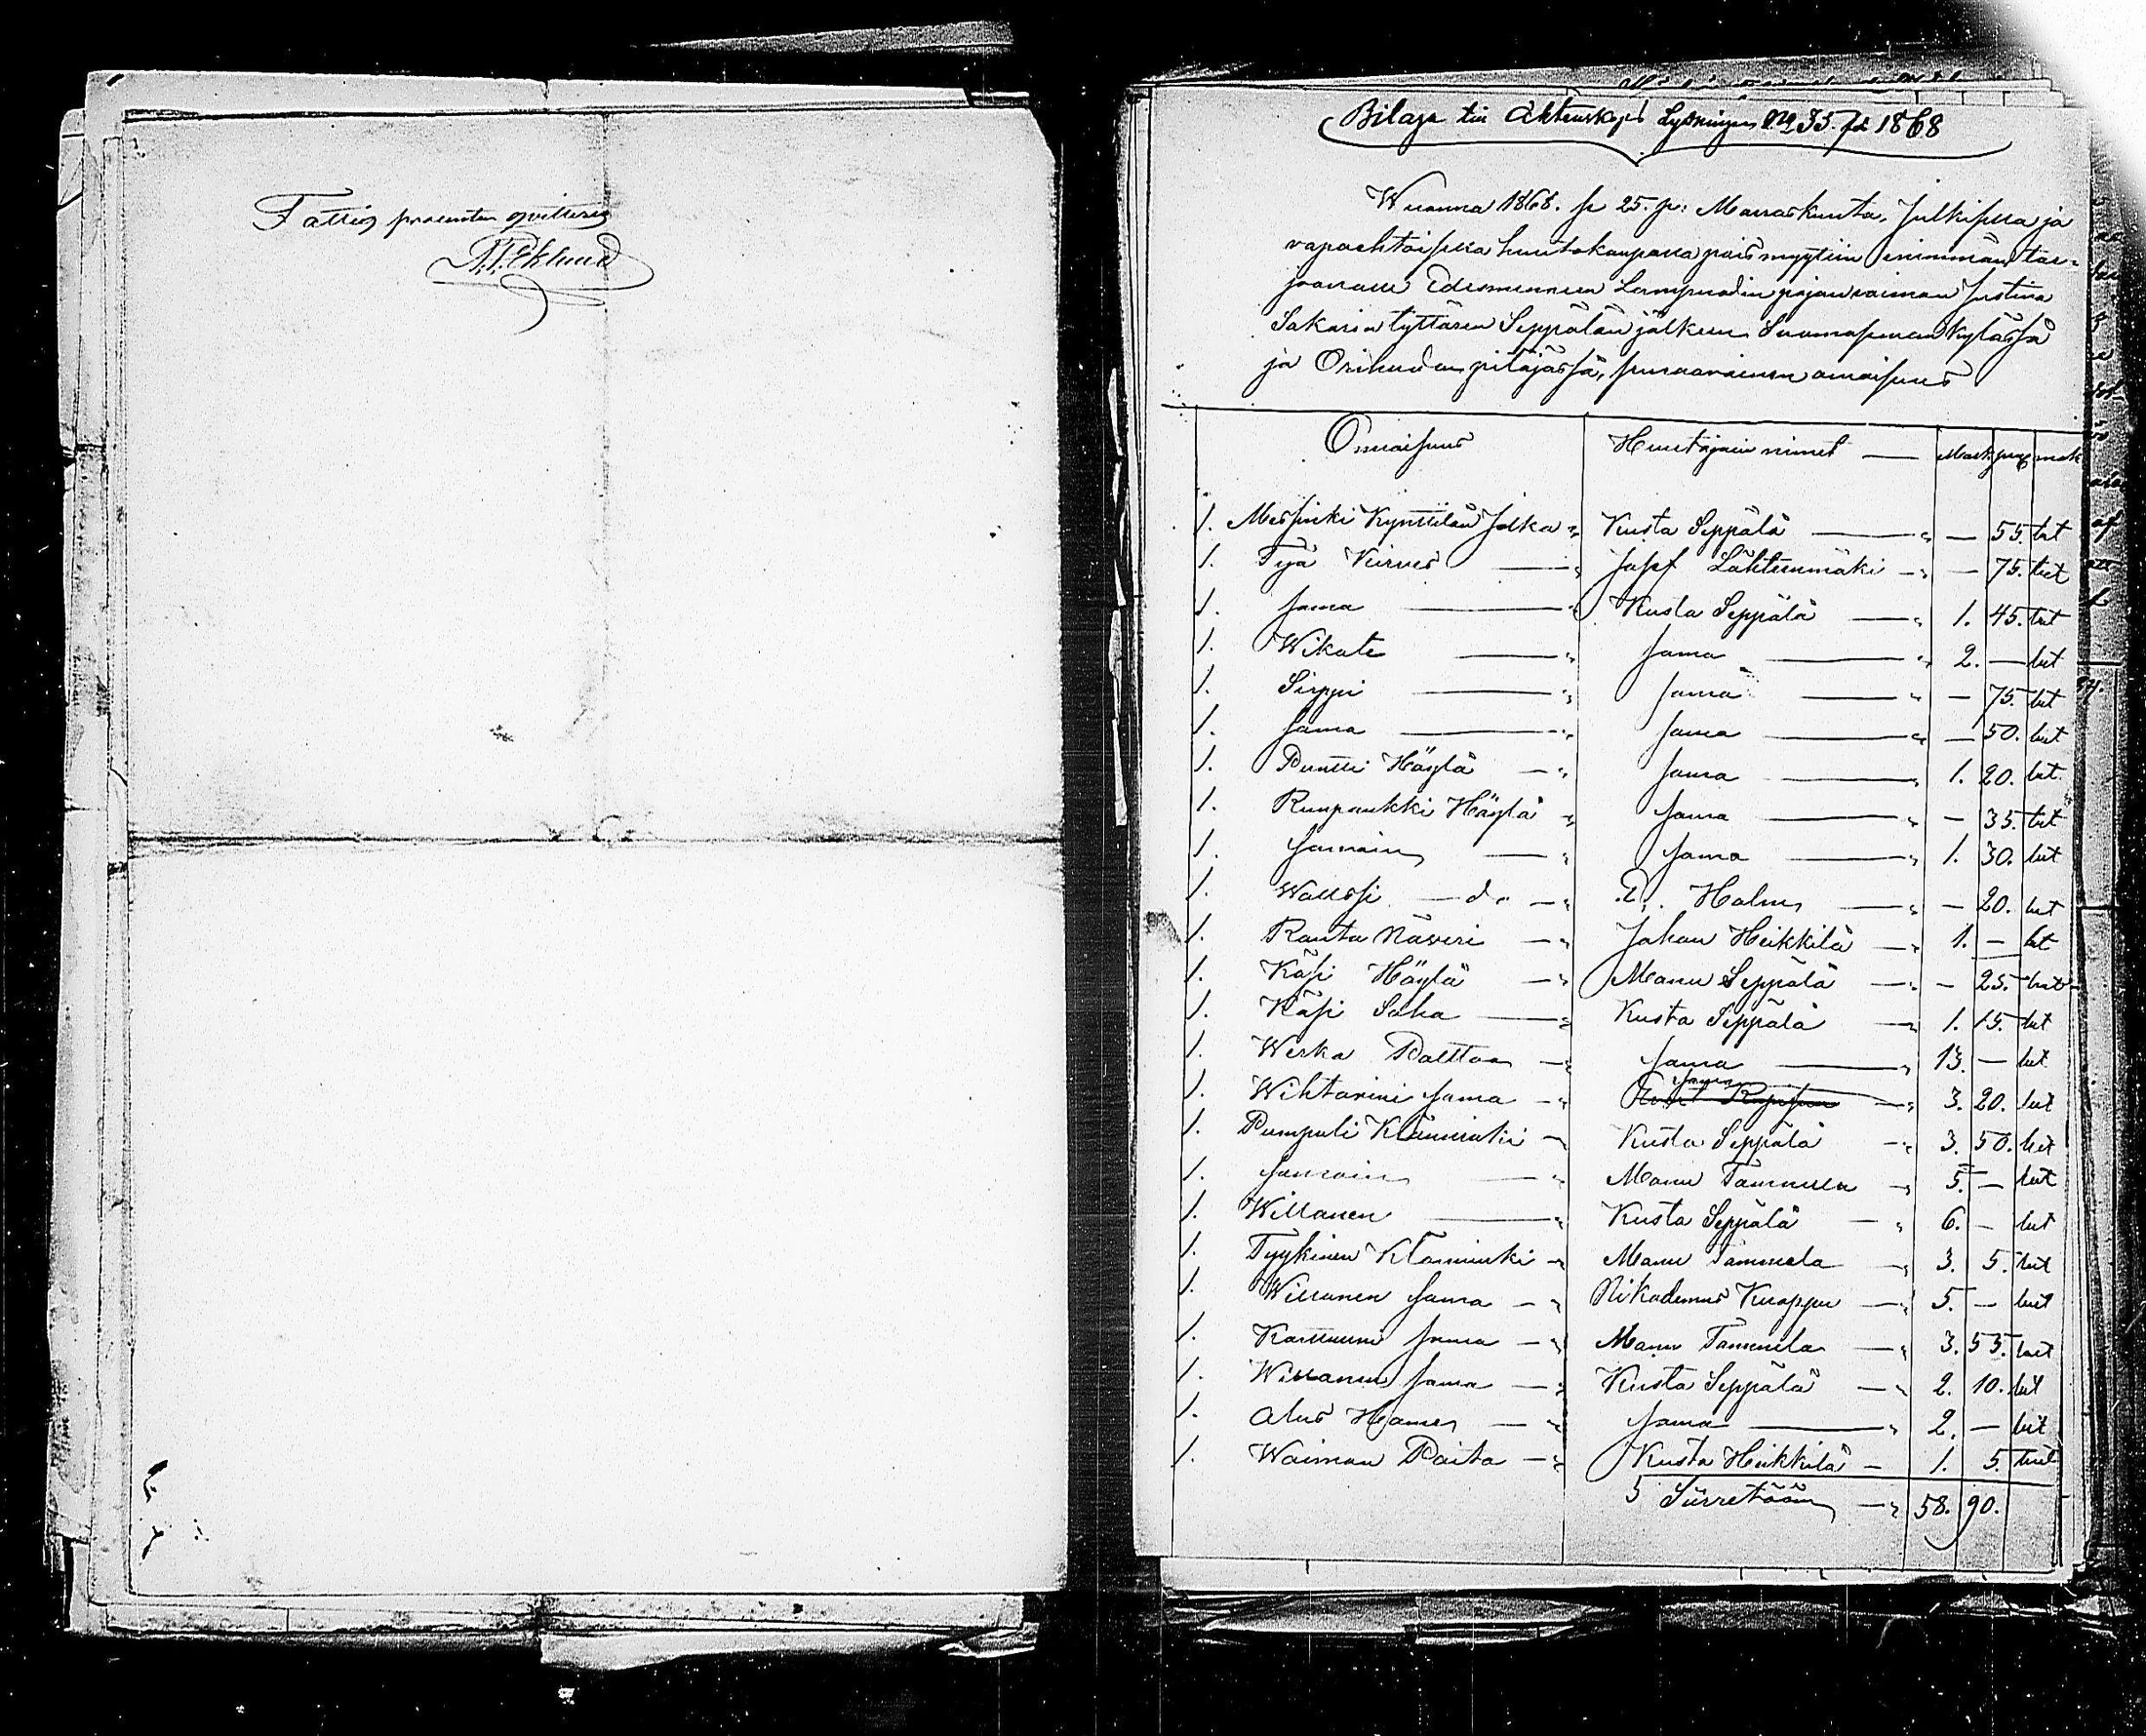 Fattig procenten qvitteras
Eklund
Bilaga till Lysningen No 35. för 1868
Wuonna 1868. p 25. p: Marraskuuta, Julkisesa ja
vapaehtoisesa huutokaupasa pois myytiin enimmän tar-
joavalle Edesmenneen Lampuodin pojan vaimon Justina
Sakarin tyttären Seppälän jälkeen kylässä
ja Oriveden pitäjässä, seuraavainen omaisuus
Omaisuus Huutajain nimet — Mark. pen mak
1. Messinki Kynttilän Jalka „ Kusta Seppälä — „ — 55. but
1. Kirves — „ Josef Lähteenmäki — „ — 75. but
1. Sama — „ Kusta Seppälä — „ 1. 45. but
1. Wikate — „ Sama — „ 2. — but
1. Sirppi — „ Sama — „ — 75. but
1. Sama — „ Sama — „ — 50. but
1. Höylä — „ Sama — „ 1. 20. but
1. Höylä „ Sama — „ — 35. but
1. Samain — „ Sama — „ 1. 30. but
1. — d:o — „ Holm — „ — 20. but
1. Rauta Näveri — „ Johan Heikkilä — „ 1. — but
1. Käsi Höylä — „ Manu Seppälä — „ — 25. but
1. Käsi Saha — „ Kusta Seppälä — „ 1. 15. but
1. Werka Palttoo — „ Sama — „ 13. — but
1. Sama — „ Sama — „ 3. 20. but
1. Pumpuli Klänninki — „ Kusta Seppälä — „ 3. 50. but
1. Samain — „ Manu Tammela — „ 5. — but
1. Willanen — „ Kusta Seppälä — „ 6. — but
1. Tyykinen Klänninki — „ Manu Tammela — „ 3. 5. but
1. Willanen Sama — „ Nikodemus Knappu — „ 5. — but
1. Sama — „ Manu Tammela — „ 3. 55. but
1. Willanen Sama — „ Kusta Seppälä — „ 2. 10. but
1. Alus Hames — „ Sama — „ 2. — but
1. Waimon Paita — „ Kusta Heikkilä — 1. 5. but
Siirretään — „ 58. 90.